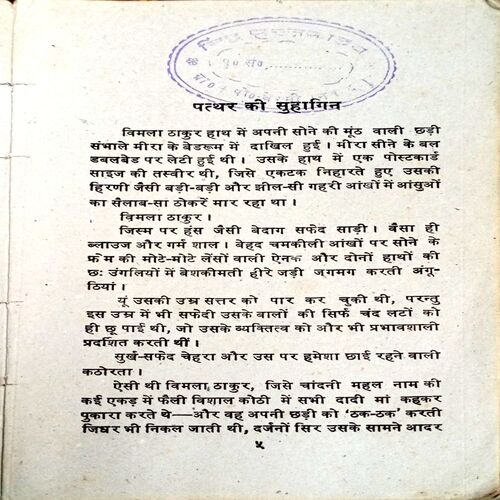 पु० सं०
पत्थर की सुहागिन
विमला ठाकुर हाथ में अपनी सोने की मूंठ वाली छड़ी
संभाले मीरा के बेडरूम में दाखिल हुई। मीरा सीने के बल
डबलबेड पर लेटी हुई थी। उसके हाथ में एक पोस्टकार्ड
साइज की तस्वीर थी, जिसे एकटक निहारते हुए उसकी
हिरणी जैसी बड़ी-बड़ी और झील-सी गहरी आंखों में आंसुओं
का सैलाब-सा ठोकरें मार रहा था।
विमला ठाकुर।
जिस्म पर हंस जैसी बेदाग सफेद साड़ी। वैसा ही
ब्लाउज और गर्म शाल। बेहद चमकीली आंखों पर सोने के
फ्रेम की मोटे-मोटे लेंसों वाली ऐनक और दोनों हाथों की
छः उंगलियों में बेशकीमती हीरे जड़ी जगमग करती अंगू-
ठियां।
यूं उसकी उम्र सत्तर को पार कर चुकी थी, परन्तु
इस उम्र में भी सफेदी उसके बालों की सिर्फ चंद लटों को
ही छू पाई थी, जो उसके व्यक्तित्व को और भी प्रभावशाली
प्रदर्शित करती थीं।
सुर्ख-सफेद चेहरा और उस पर हमेशा छाई रहने वाली
कठोरता।
ऐसी थी विमला ठाकुर, जिसे चांदनी महल नाम की
कई एकड़ में फैली विशाल कोठी में सभी दादी मां कहकर
पुकारा करते थे—और वह अपनी छड़ी को 'ठक-ठक' करती
जिधर भी निकल जाती थी, दर्जनों सिर उसके सामने आदर
५